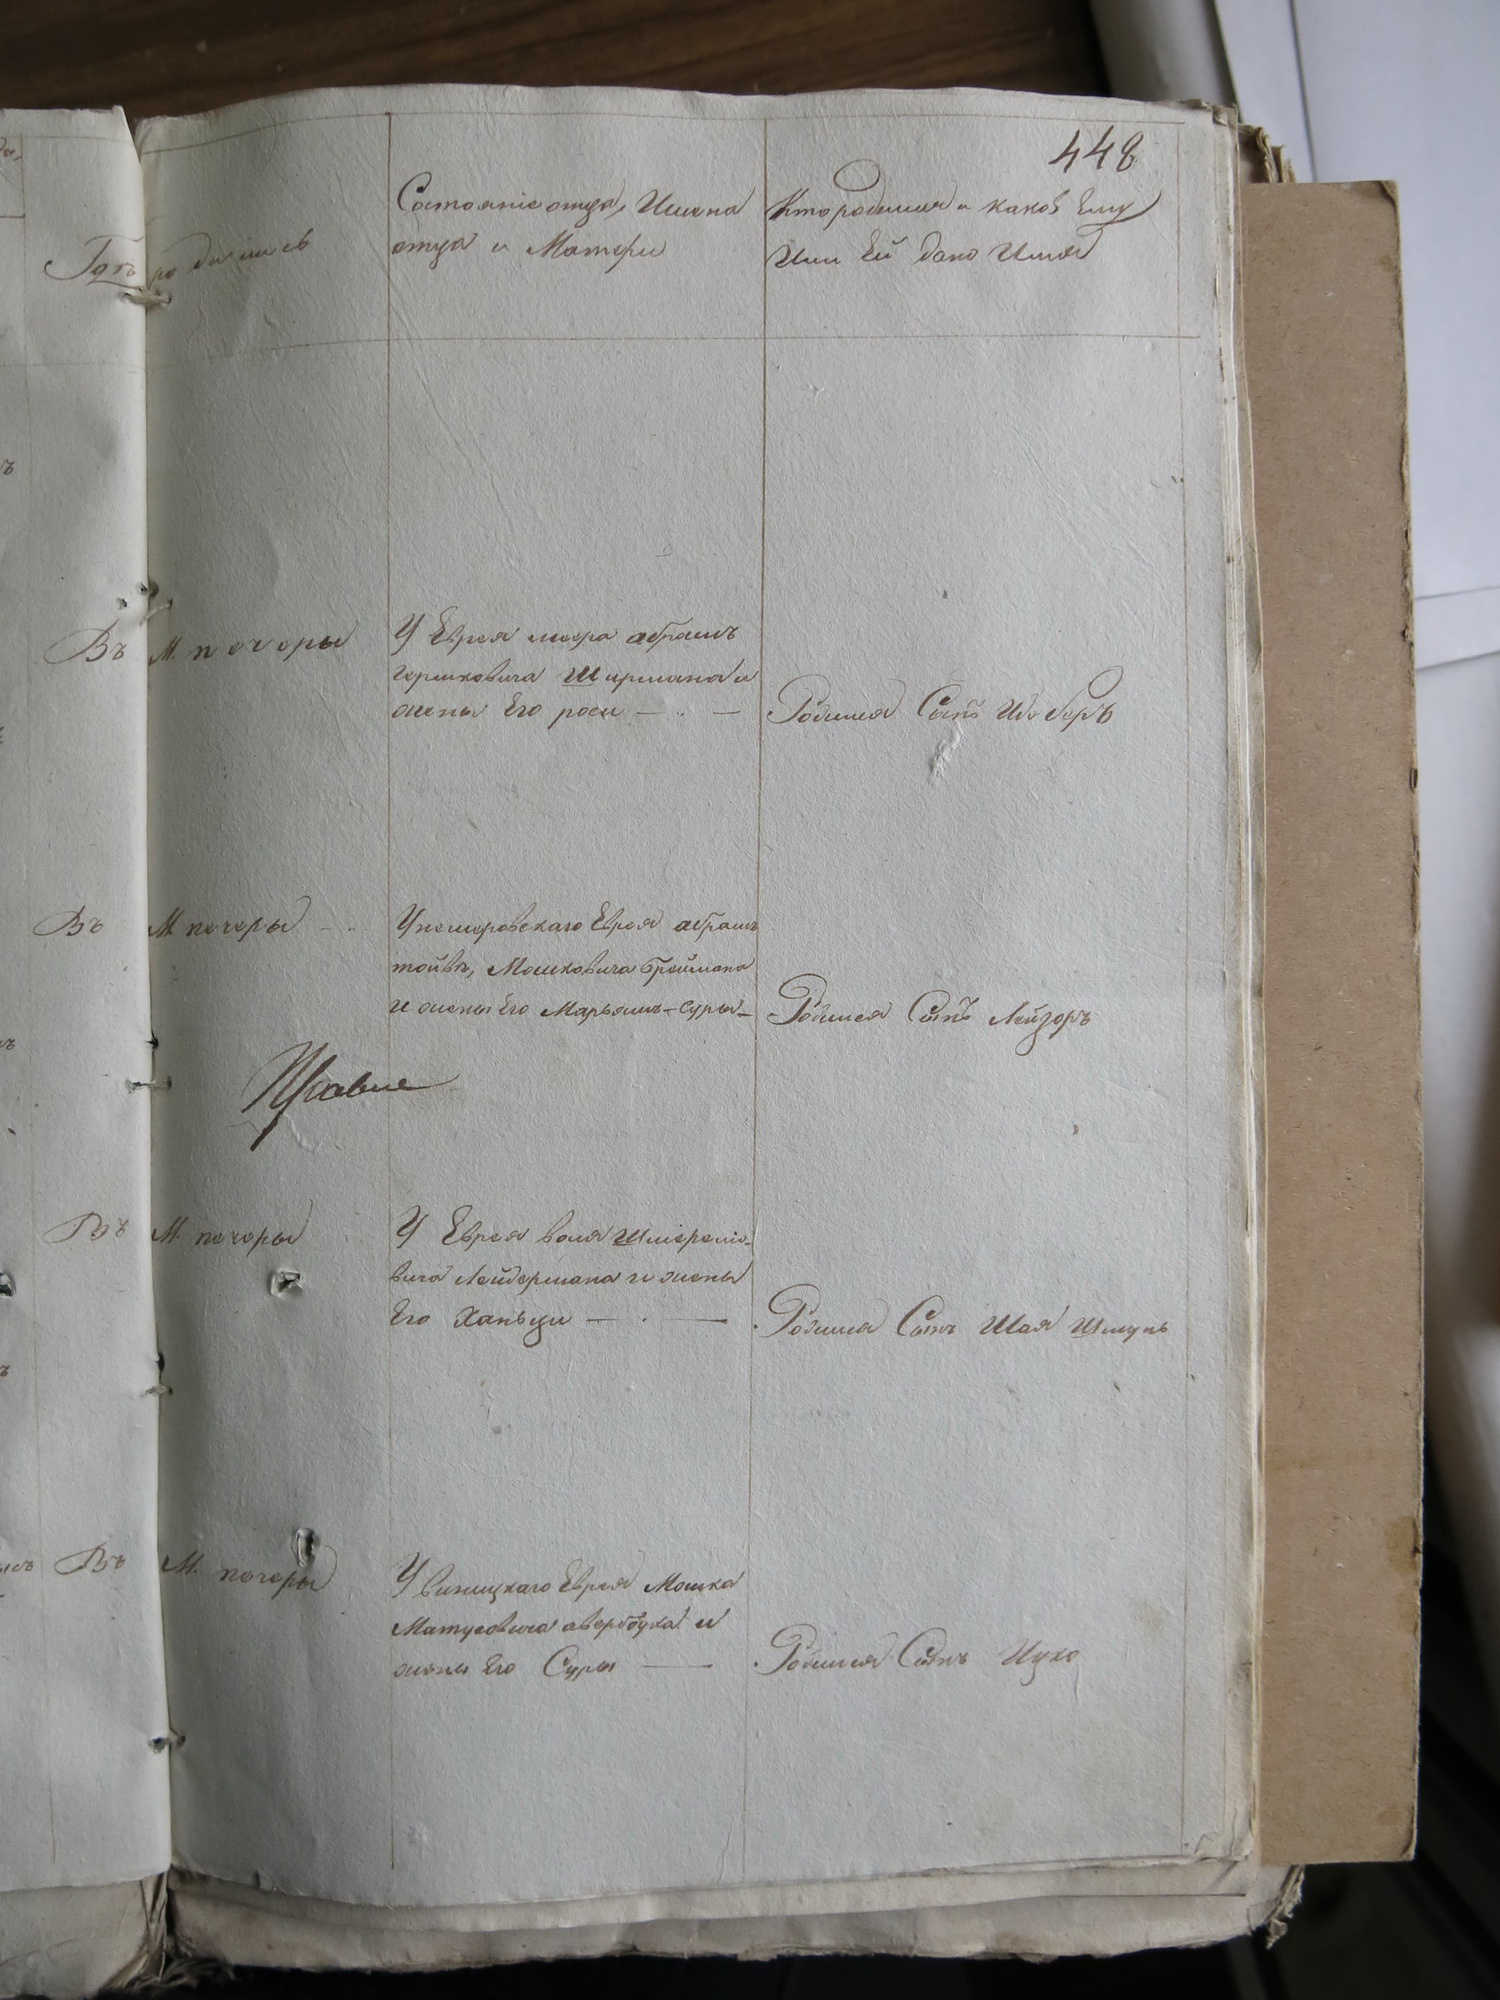 448
Гдѣ родились
Состояніе отца, Имена
отца и Матери
Кто родился и какое Ему
Или Ей дано Имя
Въ М. печеры
У Еврея меера абрамъ
гершковича Ширмана и
жены Его роси
Родился Сынъ
Въ М печеры
У немеровскаго Еврея абрамъ
тойвъ, Мошковича Броймана
и жены Его Марьямъ-Суры
Родился Сынъ Лейзоръ
Въ М. печеры
У Еврея воля Шмерелио-
вича Лейдермана и жены
Его Ханьци
Родился Сынъ Шая Шмуль
Въ М. печеры
У виницкаго Еврея Мошка
Матусовича авербуха и
жены Его Суры
Родился Сынъ Ицко